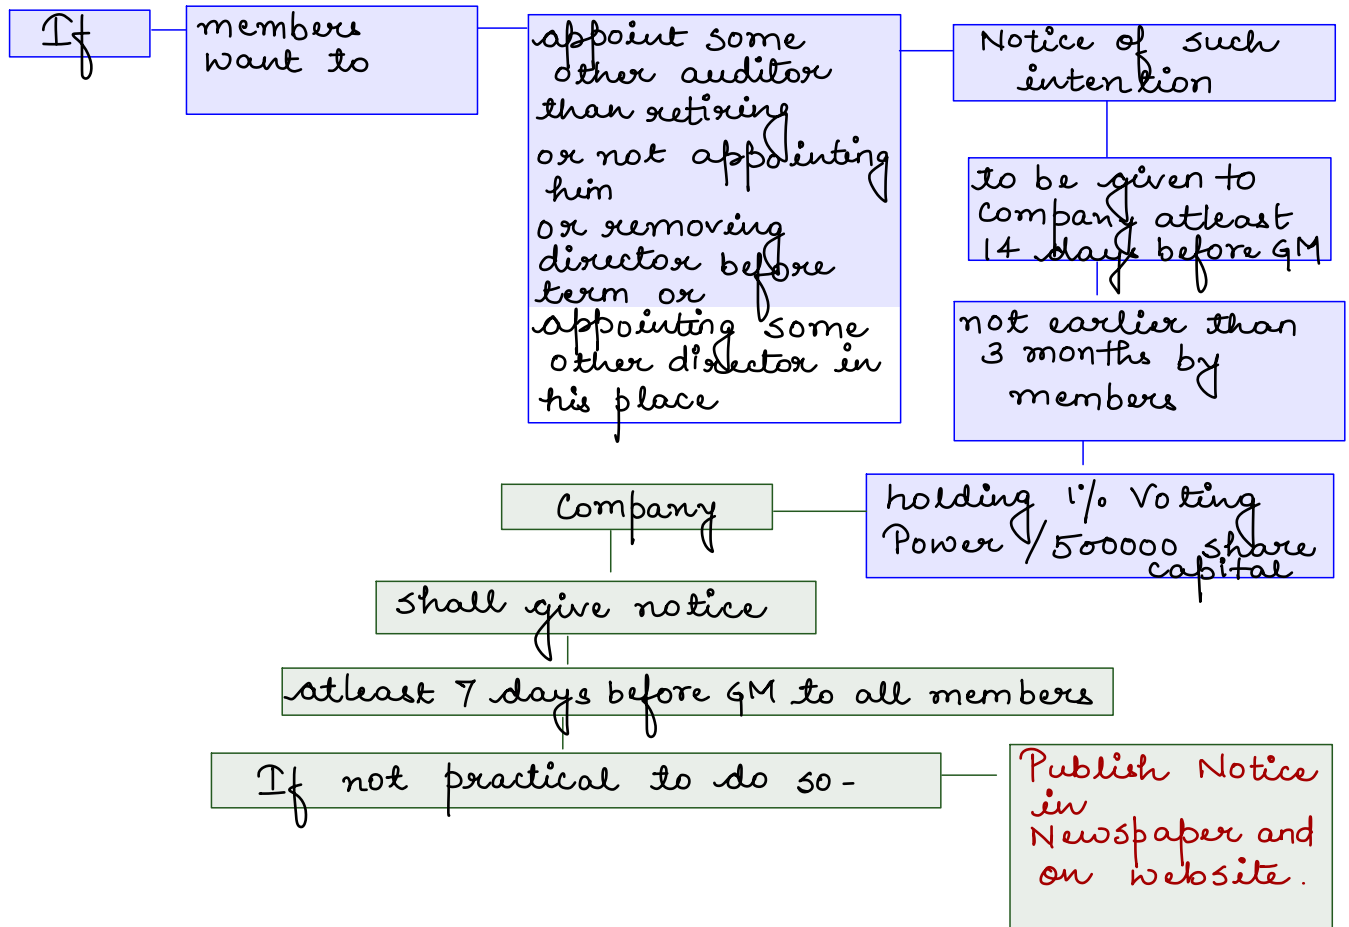 If
members
want to
appoint some
other auditor
than retiring
or not appointing
him
or removing
director before
term or
appointing some
other director in
his place
Notice of such
intention
to be given to
Company atleast
14 days before GM
not earlier than
3 months by
members
holding 1% Voting
Power / 500000 share
capital
Company
shall give notice
atleast 7 days before GM to all members
If not practical to do so -
Publish Notice
in
Newspaper and
on website.